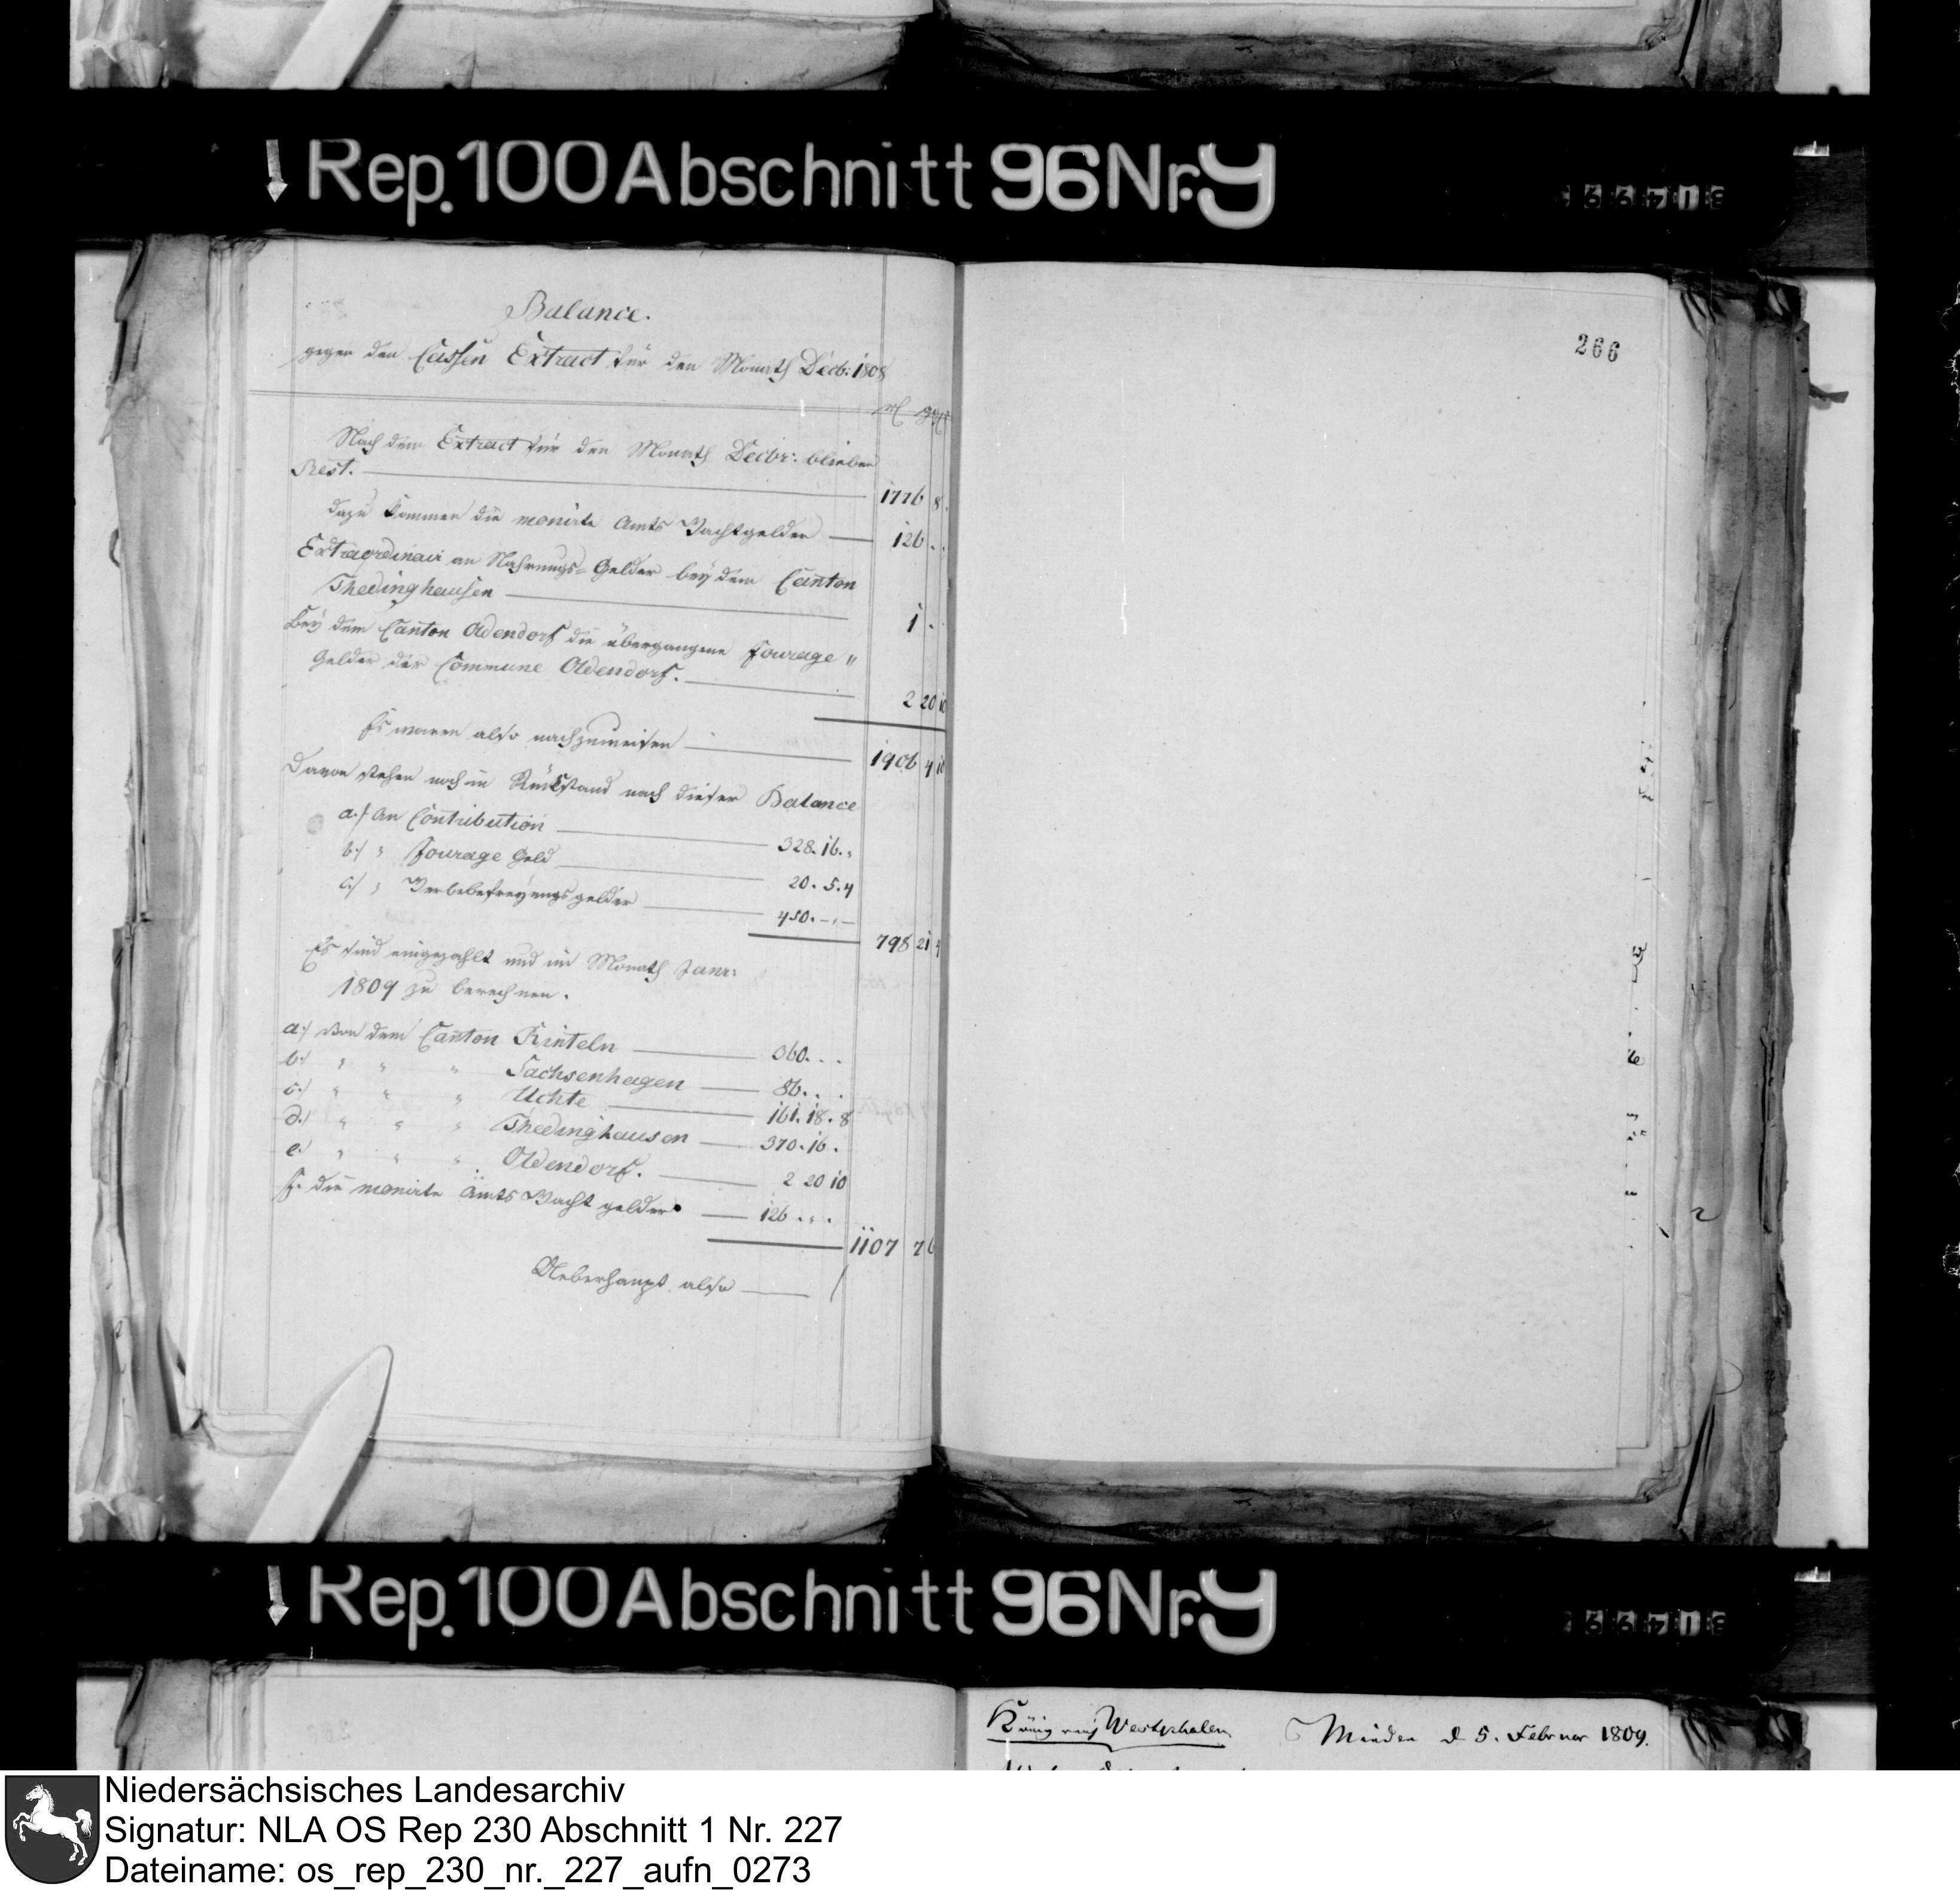 Rep. 100 Abschnitt 96 Nr. 9
Balance.
gegen den Cassen Extract für den Monath Decb: 1808
rl ggr
Nach dem Extract für den Monath Decbr: blieben
Rest. 1776 8.
dazu kommen die monirte Amts Wachtgelder 126 . .
Extraordinair an Nahrungs-Gelder bey dem Canton
Thedinghausen 1 .
Bey dem Canton Oldendorf die übergangene Fourage "
Gelder der Commune Oldendorf. 2 20 10
Es waren also nachzuweisen 1906 4 10
Davon stehen noch in Rückstand nach dieser Balance
a./ An Contribution 328. 16. "
b./ " Fourage Geld 20. 5. 4
c./ " Werbebefreyungsgelder 450. - . -
798 21 4
Es sind eingezahlt und im Monath Janr:
1809 zu berechnen.
a./ Von dem Canton Rinteln 360. . .
b./ " " " Sachsenhagen 86. . .
c./ " " " Uchte 161. 18. 8
d./ " " " Thedinghausen 370. 16 .
e./ " " " Oldendorf. 2 20 10
f. die monirte Amts Wacht gelder 126 . " .
1107 7 6
Ueberhaupt also
266
Rep. 100 Abschnitt 96 Nr. 9
Königreich Westphalen Minden d 5. Februar 1809.
Niedersächsisches Landesarchiv
Signatur: NLA OS Rep 230 Abschnitt 1 Nr. 227
Dateiname: os_rep_230_nr._227_aufn_0273